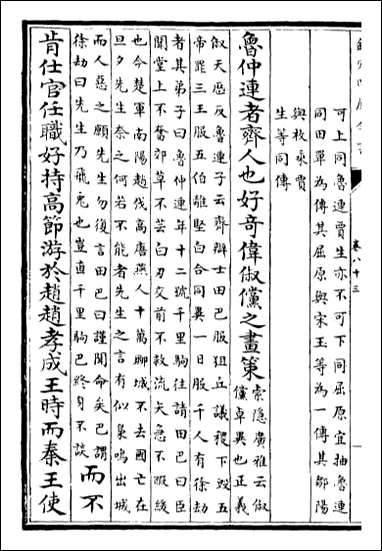 卷八十三
可上同魯連賈生亦不可下同屈原宜抽魯連
同田單為傳其屈原與宋玉等為一傳其鄒陽
與枚乘賈
生等同傳
魯仲連者齊人也好奇偉俶儻之畫策
索隱廣雅云俶
儻卓異也正義
俶天歴反魯連子云齊辯士田巴服狙丘議稷下毀五
帝罪三王服五伯離堅白合同異一日服千人有徐劫
者其弟子曰魯仲連年十二號千里駒往請田巴曰臣
聞堂上不奮郊草不芸白刃交前不救流矢急不暇緩
也今楚軍南陽趙伐高唐燕人十萬聊城不去國亡在
旦夕先生奈之何若不能者先生之言有似梟鳴出城
而人惡之願先生勿復言田巴曰謹聞命矣巴謂
徐劫曰先生乃飛兔也豈直千里駒巴終身不談
而不
肯仕官任職好持高節游於趙趙孝成王時而秦王使